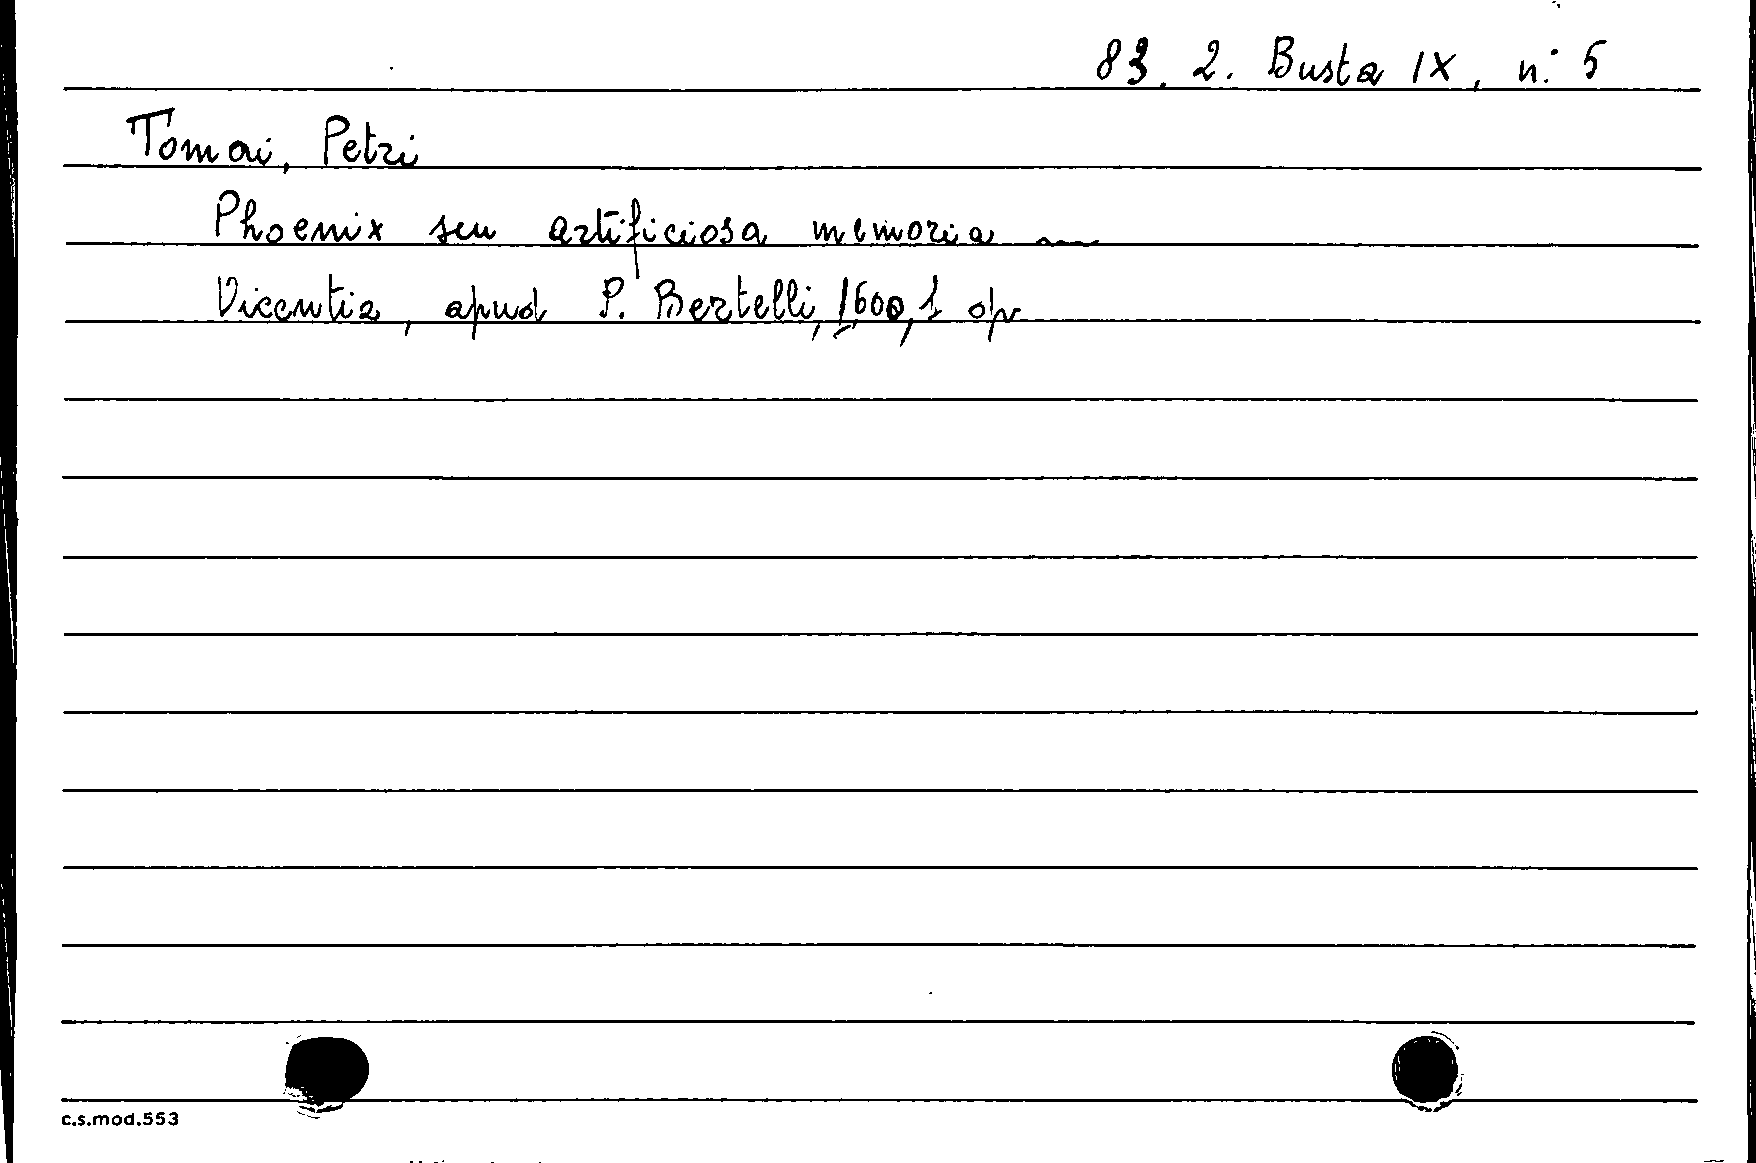 83. 2. Busta IX, n. 5
Tomai, Petri
Phoenix seu artificiosa memoria ...
Vicentia, apud P. Bertelli, 1600, 1 op
c.s.mod.553